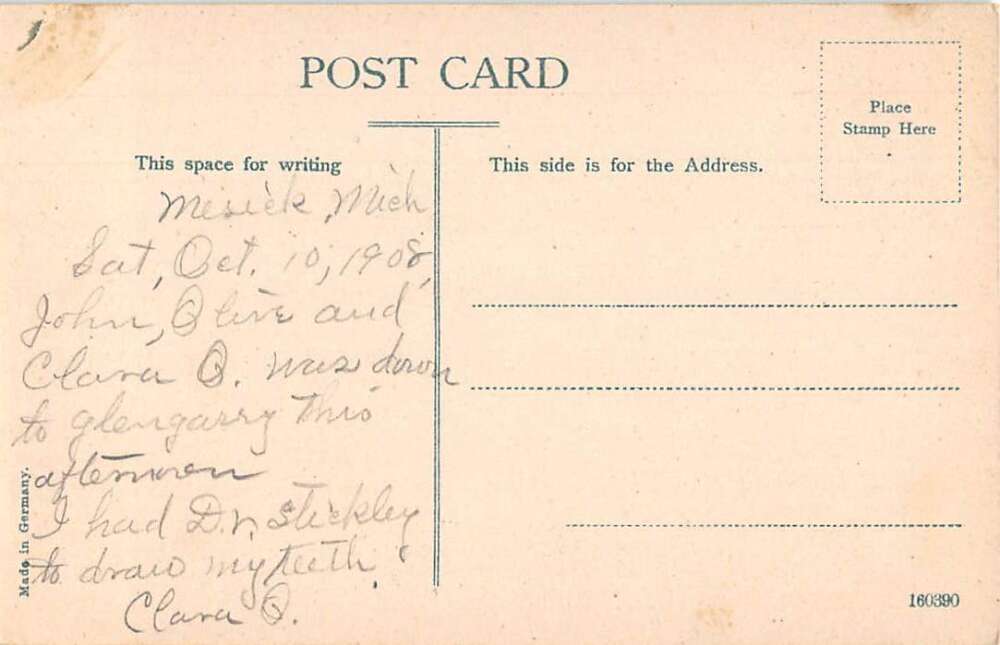 POST CARD
Place
Stamp Here
This space for writing
This side is for the Address.
Mesick, Mich
Sat, Oct. 10, 1908,
John, Olive and
Clara O. was down
to glengarry this
afternoon
I had Dr. Stickley
to draw my teeth.
Clara O.
Made in Germany.
160390